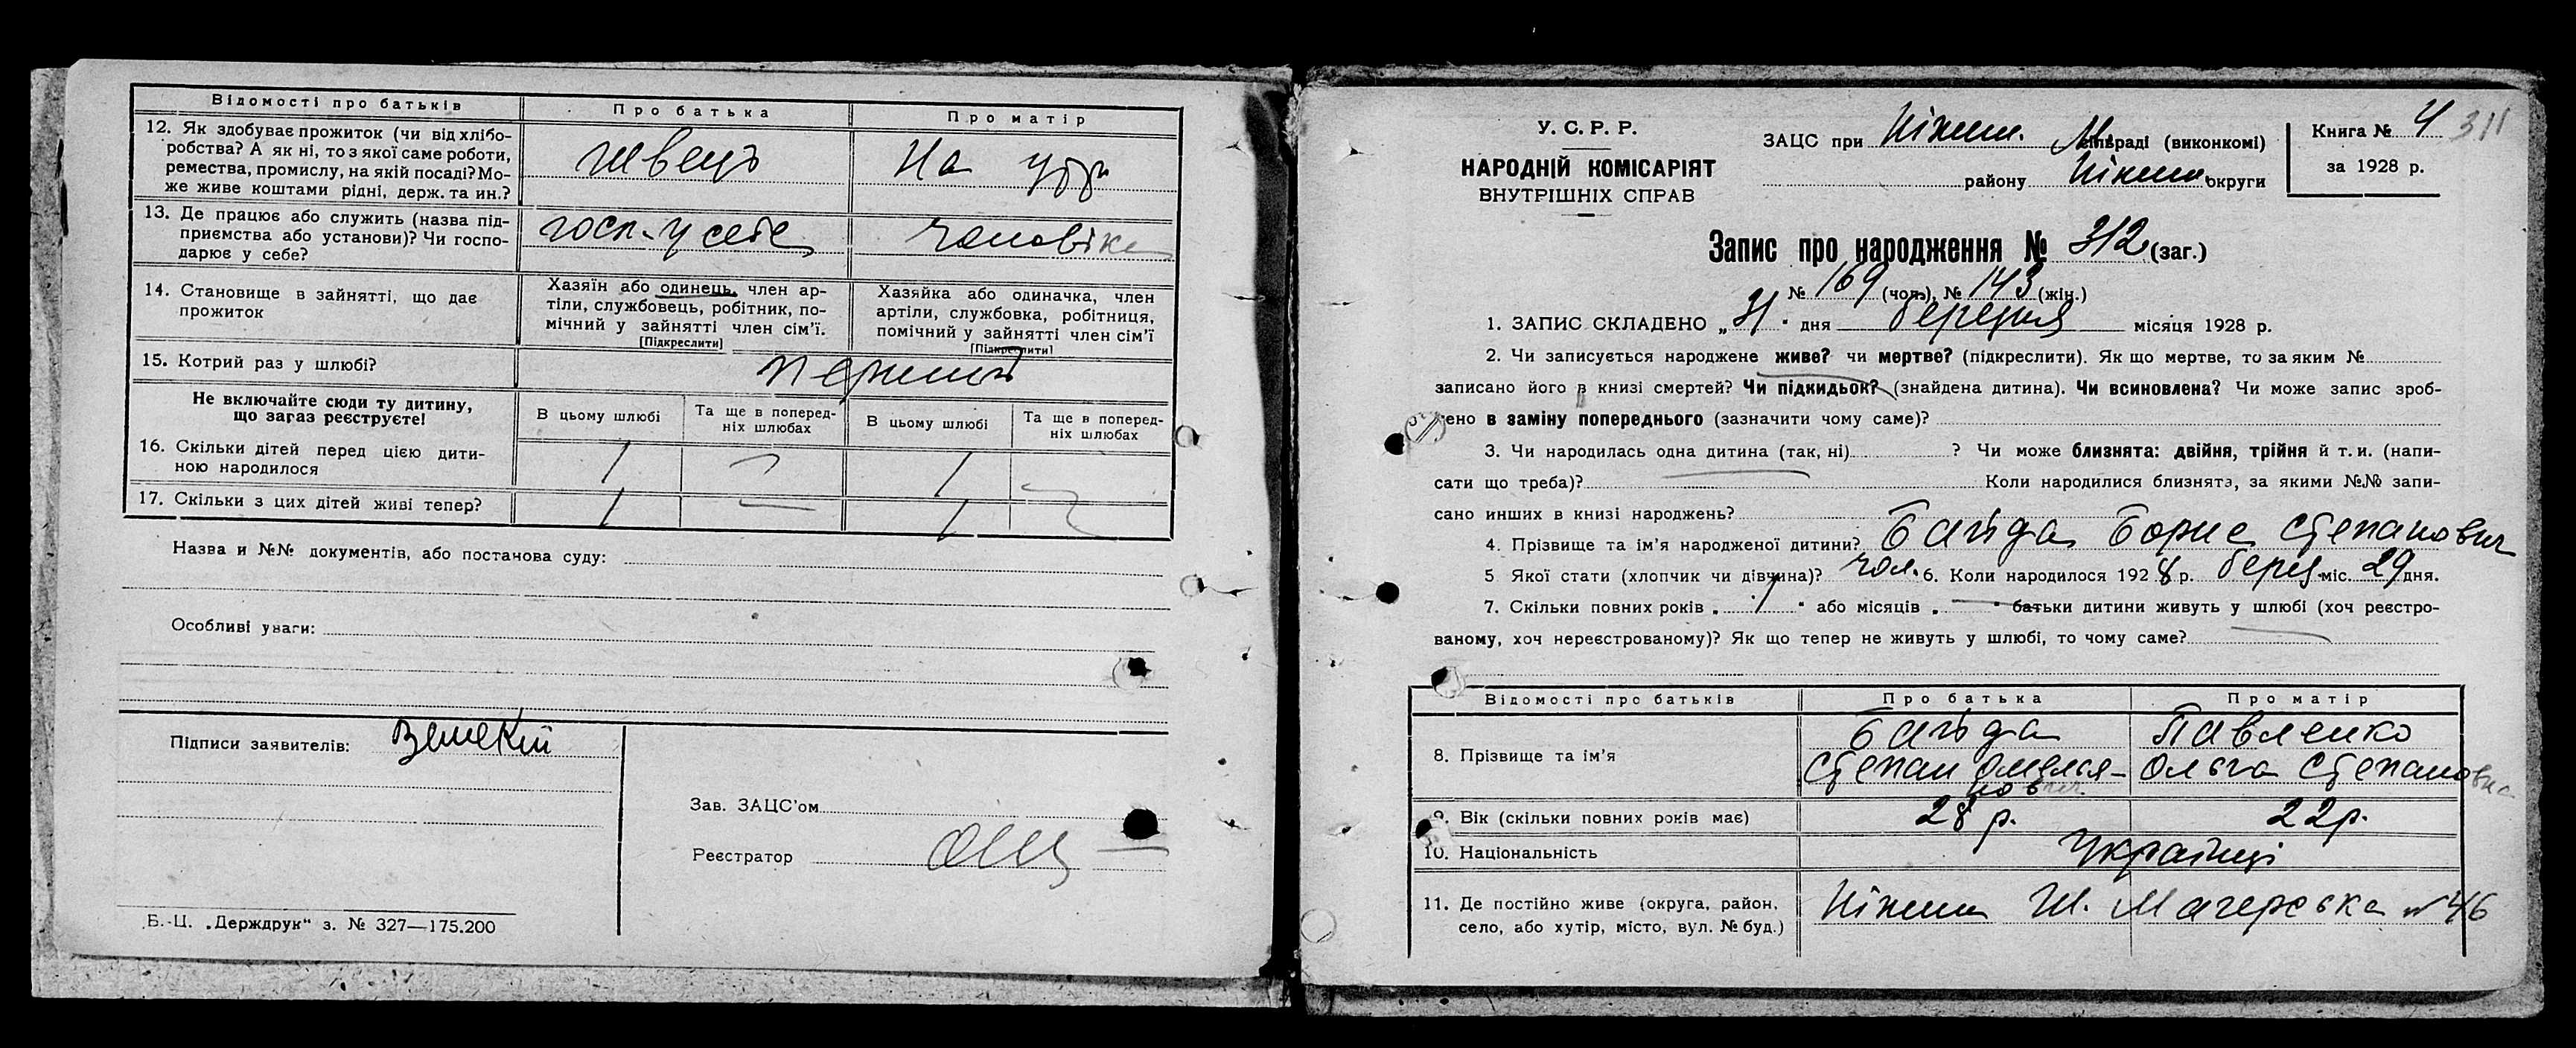 Відомості про батьків Про батька Про матір
12. Як здобуває прожиток (чи від хлібо-
робства? А як ні, то з якої саме роботи,
ремества, промислу, на якій посаді? Мо-
же живе коштами рідні, держ. та ин.?
швець На утр
13. Де працює або служить (назва під-
приємства або установи)? Чи госпо-
дарює у себе?
госп. у себе чоловіка
14. Становище в зайнятті, що дає
прожиток
Хазяїн або одинець, член ар-
тіли, службовець, робітник, по-
мічний у зайнятті член сім'ї.
[Підкреслити]
Хазяйка або одиначка, член
артіли, службовка, робітниця,
помічний у зайнятті член сім'ї
[Підкреслити]
15. Котрий раз у шлюбі?
перший
Не включайте сюди ту дитину,
що зараз реєструєте!
В цьому шлюбі Та ще в поперед-
ніх шлюбах В цьому шлюбі Та ще в поперед-
ніх шлюбах
16. Скільки дітей перед цією дити-
ною народилося
1 — 1 —
17. Скільки з цих дітей живі тепер?
1 — 1 —
Назва и №№ документів, або постанова суду:
Особливі уваги:
Підписи заявителів:
Зав. ЗАЦС'ом
Реєстратор
Б.-Ц. „Держдрук" з. № 327—175.200
У. С. Р. Р.
НАРОДНІЙ КОМІСАРІЯТ
ВНУТРІШНІХ СПРАВ
ЗАЦС при Ніжин. М раді (виконкомі)
району Ніжин. округи
Книга № 4 311
за 1928 р.
Запис про народження № 312 (заг.)
№ 169 (чол.), № 143 (жін.)
1. ЗАПИС СКЛАДЕНО „31" дня березня місяця 1928 р.
2. Чи записується народжене живе? чи мертве? (підкреслити). Як що мертве, то за яким №
записано його в книзі смертей? Чи підкидьок? (знайдена дитина). Чи всиновлена? Чи може запис зроб-
лено в заміну попереднього (зазначити чому саме)?
3. Чи народилась одна дитина (так, ні) ? Чи може близнята: двійня, трійня й т. и. (напи-
сати що треба)? Коли народилися близнята, за якими №№ запи-
сано инших в книзі народжень?
4. Прізвище та ім'я народженої дитини? Байда Борис Степанович
5 Якої стати (хлопчик чи дівчина)? чол. 6. Коли народилося 1928 р. берез міс. 29 дня.
7. Скільки повних років „ " або місяців „ — " батьки дитини живуть у шлюбі (хоч реєстро-
ваному, хоч нереєстрованому)? Як що тепер не живуть у шлюбі, то чому саме?
Відомості про батьків Про батька Про матір
8. Прізвище та ім'я
Байда
Степан Омелья-
нович
Павленко
Ольга Степановна
9. Вік (скільки повних років має) 28 р. 22 р.
10. Національність Українці
11. Де постійно живе (округа, район,
село, або хутір, місто, вул. № буд.)
Ніжин Ш. Магерська № 46